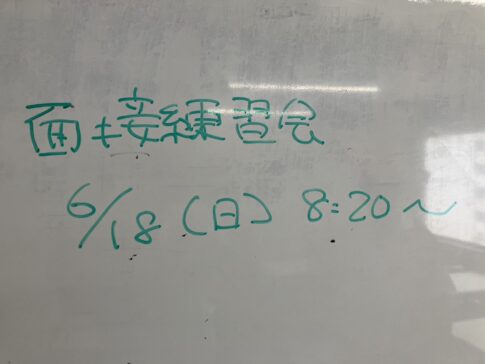 面接練習会
6/18(日) 8:20~